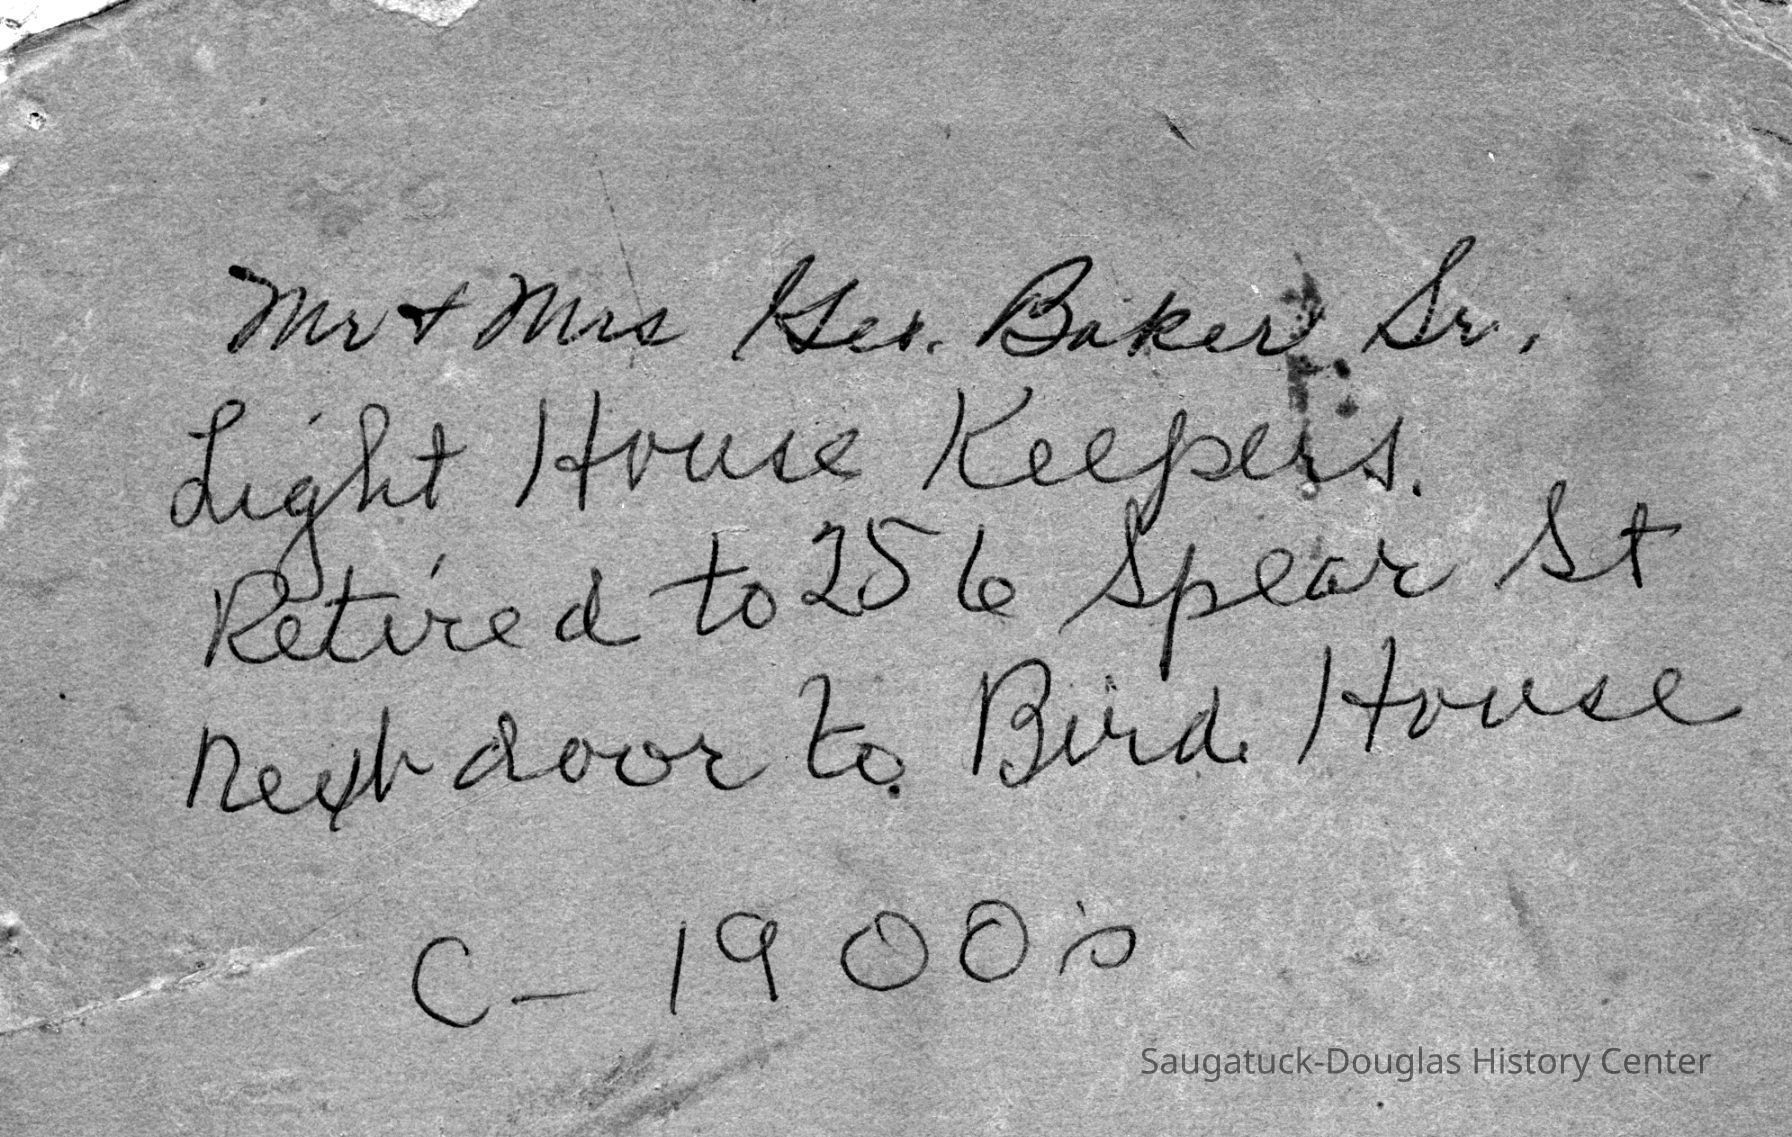 Mr + Mrs Geo. Baker Sr.
Light House Keepers.
Retired to 256 Spear St
next door to Bird House
C - 1900's
Saugatuck-Douglas History Center